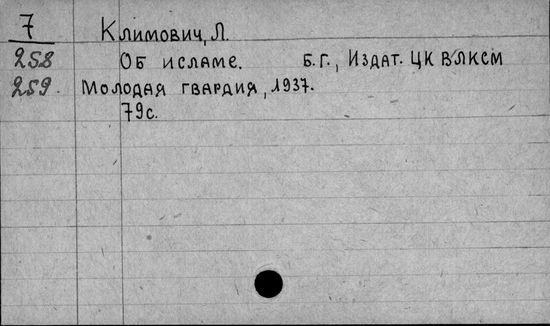 7 Климович, Л.
258 Об исламе. Б.Г., Издат. ЦК ВЛКСМ
259. Молодая гвардия, 1937.
79с.